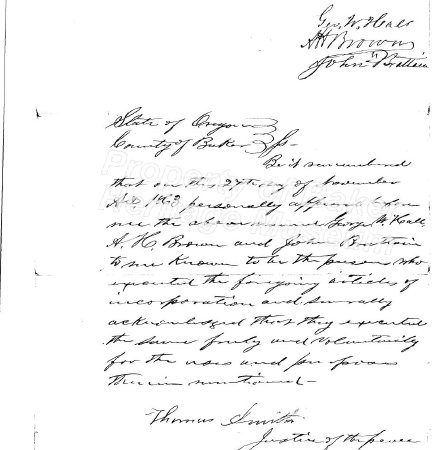 Geo. W. Hall
A H Brown
John Brattain
State of Oregon
County of Baker } ss-
Be it remembered
that on the 27th day of November
A.D. 1863 personally appeared before
me the above named George W. Hall
A. H. Brown and John Brattain
to me known to be the persons who
executed the foregoing articles of
incorporation and severally
acknowledged that they executed
the same freely and voluntarily
for the uses and purposes
therein mentioned-
Thomas Smith
Justice of the peace